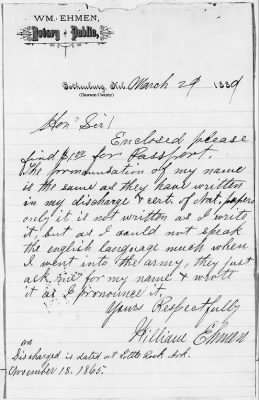 WM. EHMEN,
Notary Public,
Gothenburg, Neb. March 29 1889
(Dawson County)
Hon' Sir!
Enclosed please
find $1.00 for Passport.
The pronounsation of my name
is the same as they have written
in my discharge & cert. of Nat. papers
only it is not written as I write
it, but as I could not speak
the english language much when
I went into the army, they just
ask "me" for my name & wrote
it as I pronounce it.
Yours Respectfully
William Ehmen
Discharged is dated at Little Rock Ark.
November 18. 1865.